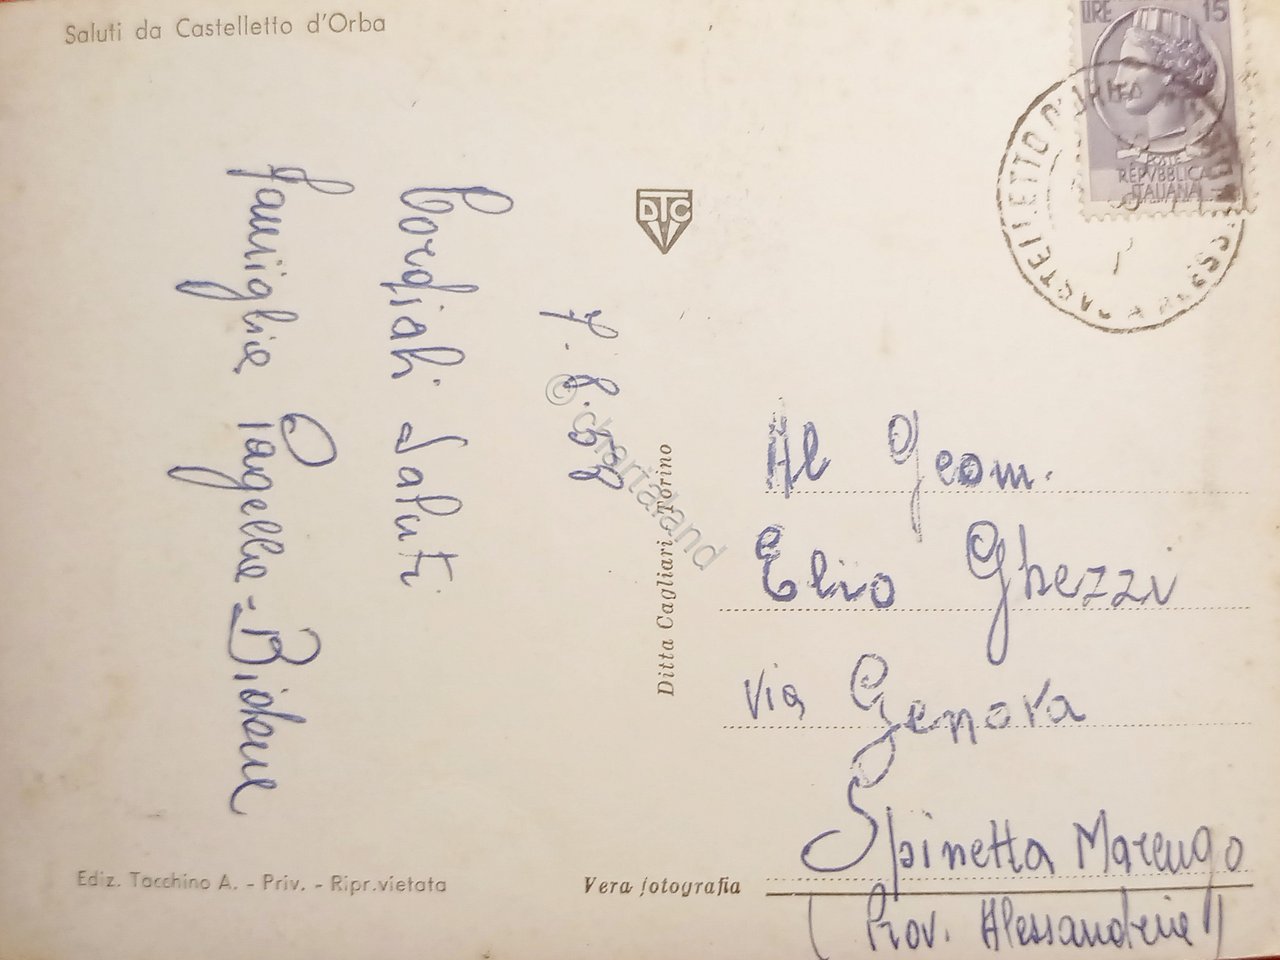 Saluti da Castelletto d'Orba
LIRE 15
POSTE
REPVBBLICA
ITALIANA
DTC
Cordiali Saluti
famiglia
© chartaland
Ditta Cagliari, Torino
Al Geom.
Elio Ghezzi
Via Genova
Spinetta Marengo
(Prov. Alessandria)
Ediz. Tacchino A. - Priv. - Ripr. vietata
Vera fotografia